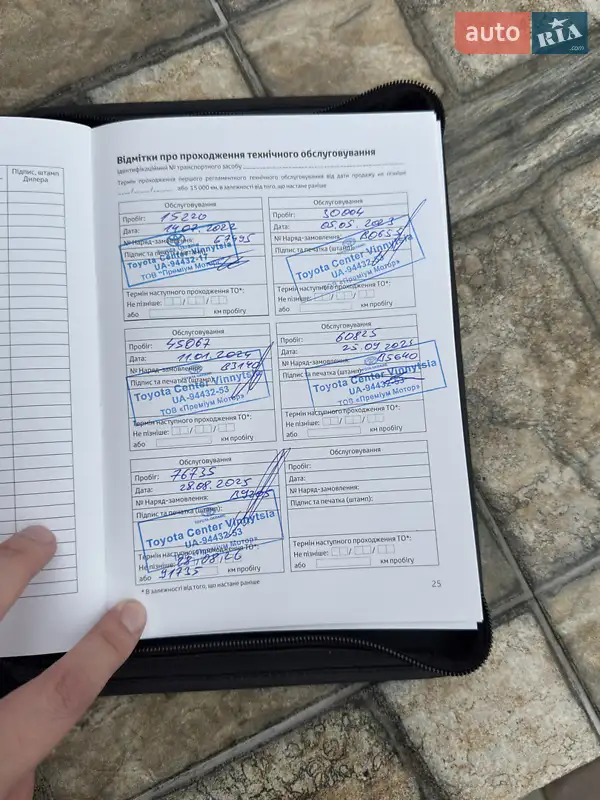 auto RIA.com
Підпис, штамп
Дилера
Відмітки про проходження технічного обслуговування
Ідентифікаційний № транспортного засобу
Термін проходження першого регламентного технічного обслуговування від дати продажу не пізніше
__/__/__ або 15 000 км, в залежності від того, що настане раніше
Обслуговування
Пробіг: 15220
Дата: 14.07.2022
№ Наряд-замовлення:
Підпис та печатка
Toyota Center Vinnytsia
UA-94432-17
ТОВ «Преміум Мотор»
Термін наступного проходження ТО*:
Не пізніше:
або км пробігу
Обслуговування
Пробіг: 30004
Дата: 05.05.2023
№ Наряд-замовлення:
Підпис та печатка (штамп):
Toyota Center Vinnytsia
UA-94432
ТОВ «Преміум Мотор»
Термін наступного проходження ТО*:
Не пізніше:
або км пробігу
Обслуговування
Пробіг: 45067
Дата: 11.01.2024
№ Наряд-замовлення: 83140
Підпис та печатка (штамп):
Toyota Center Vinnytsia
UA-94432-53
ТОВ «Преміум Мотор»
Термін наступного проходження ТО*:
Не пізніше:
або км пробігу
Обслуговування
Пробіг: 60825
Дата:
№ Наряд-замовлення: 85640
Підпис та печатка (штамп):
Toyota Center Vinnytsia
UA-94432-53
ТОВ «Преміум Мотор»
Термін наступного проходження ТО*:
Не пізніше:
або км пробігу
Обслуговування
Пробіг: 76735
Дата: 28.08.2025
№ Наряд-замовлення:
Підпис та печатка (штамп):
Toyota Center Vinnytsia
UA-94432-53
Термін наступного проходження ТО*:
Не пізніше:
або 91735 км пробігу
Обслуговування
Пробіг:
Дата:
№ Наряд-замовлення:
Підпис та печатка (штамп):
Термін наступного проходження ТО*:
Не пізніше:
або км пробігу
* В залежності від того, що настане раніше
25